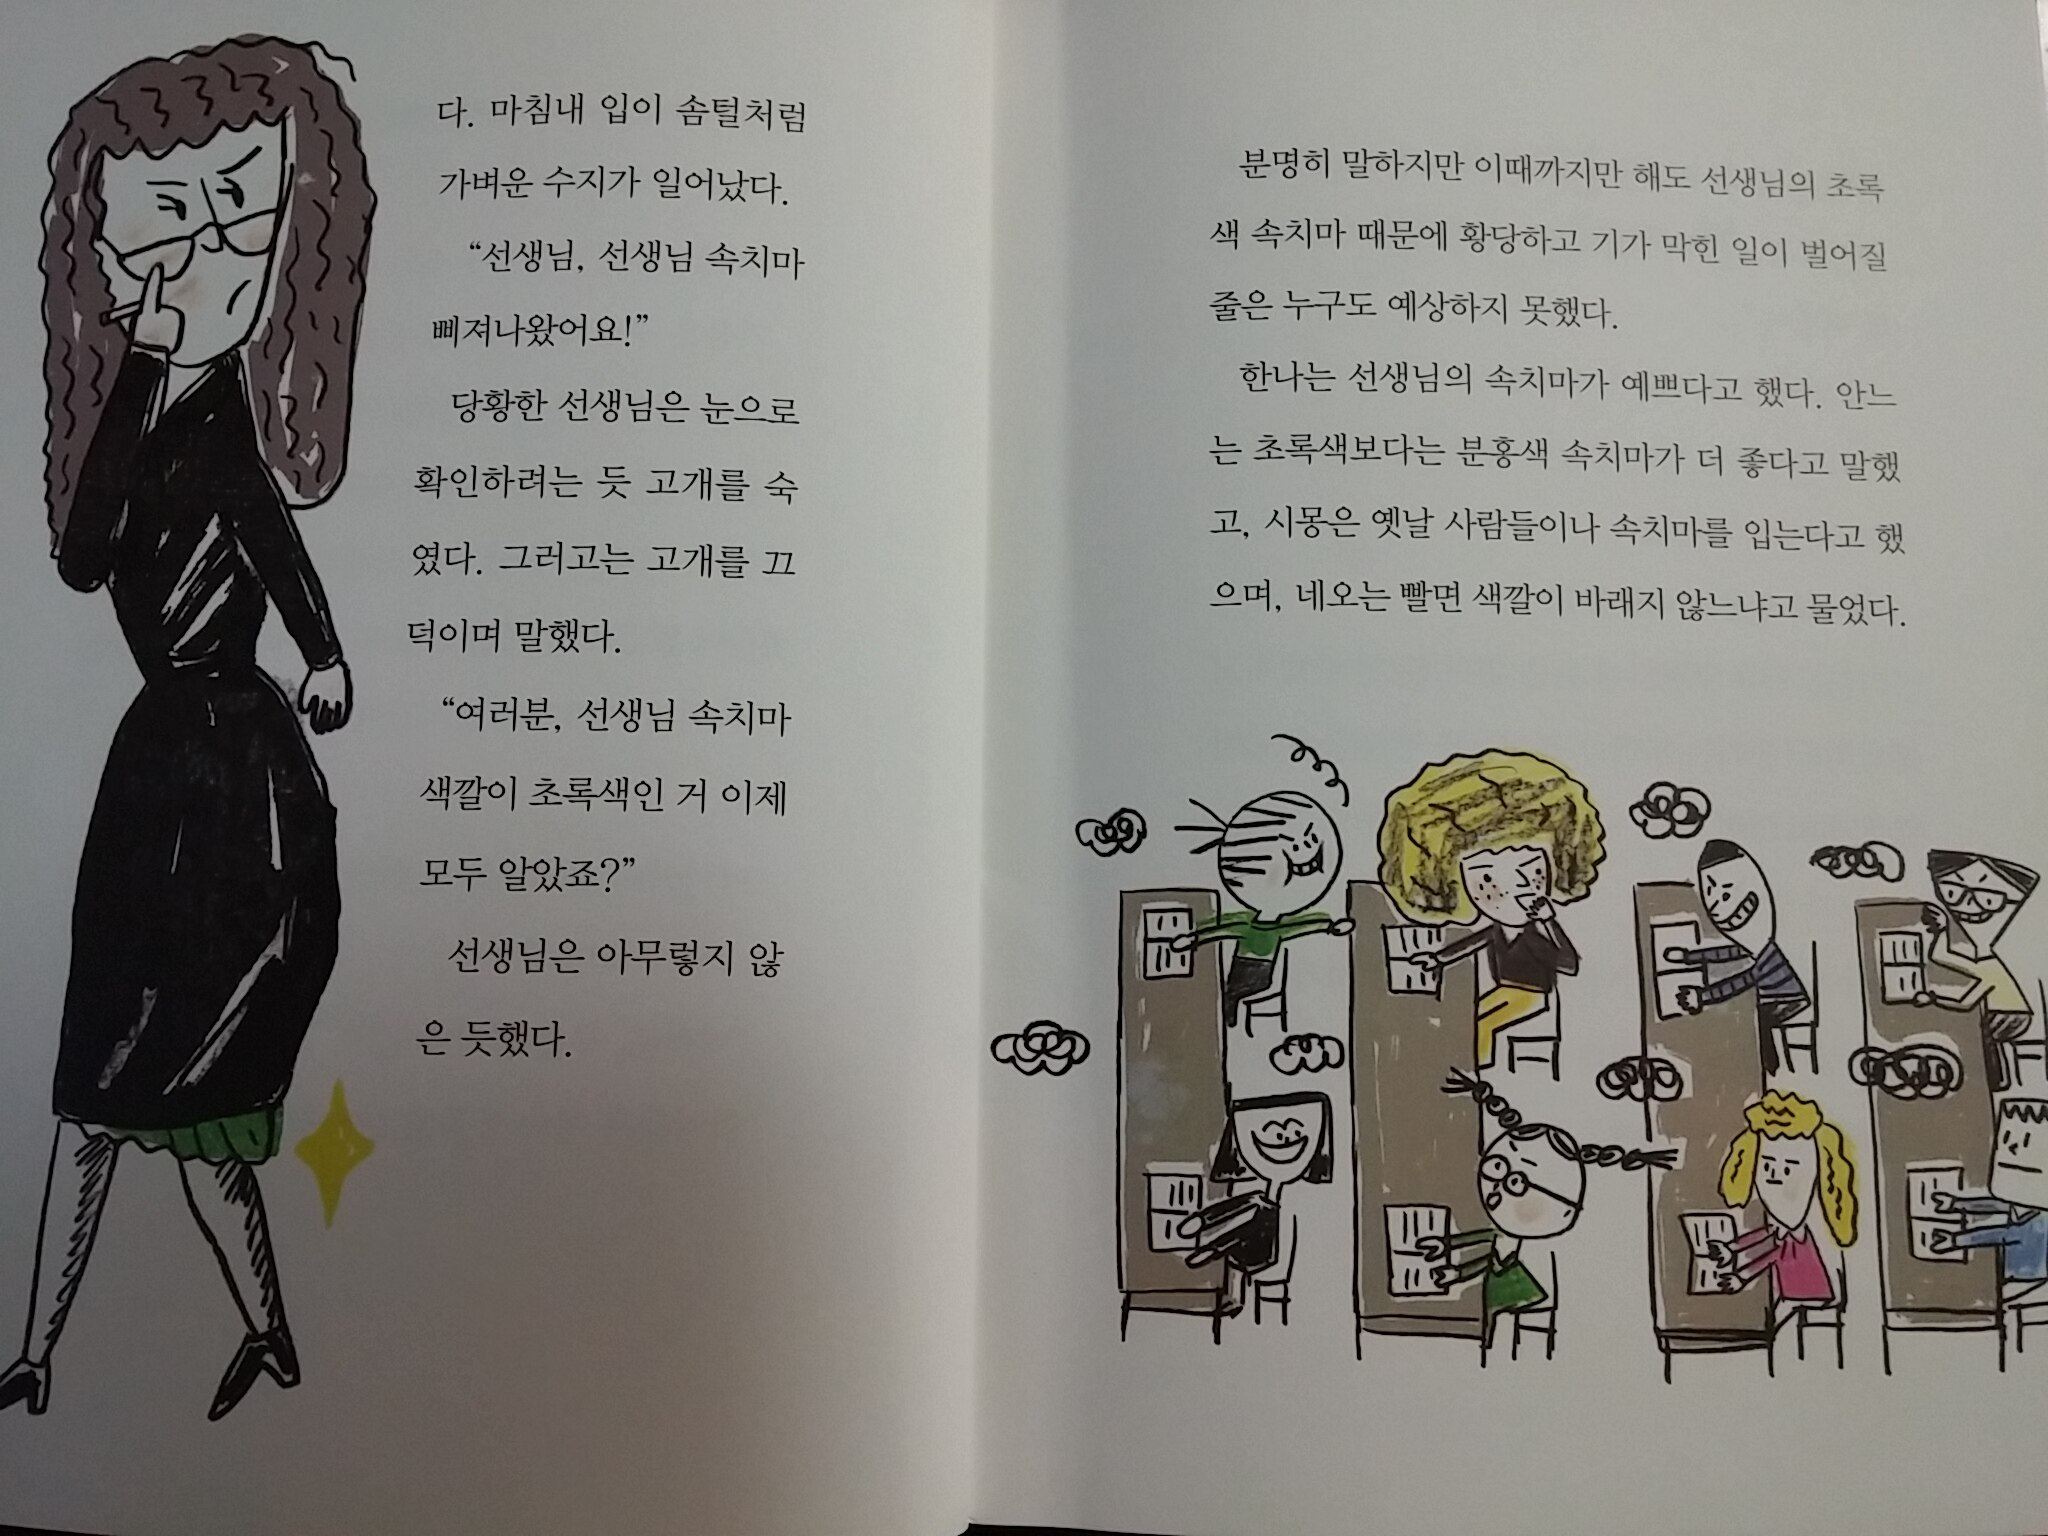 다. 마침내 입이 솜털처럼
가벼운 수지가 일어났다.
“선생님, 선생님 속치마
삐져나왔어요!”
당황한 선생님은 눈으로
확인하려는 듯 고개를 숙
였다. 그러고는 고개를 끄
덕이며 말했다.
“여러분, 선생님 속치마
색깔이 초록색인 거 이제
모두 알았죠?”
선생님은 아무렇지 않
은 듯했다.
분명히 말하지만 이때까지만 해도 선생님의 초록
색 속치마 때문에 황당하고 기가 막힌 일이 벌어질
줄은 누구도 예상하지 못했다.
한나는 선생님의 속치마가 예쁘다고 했다. 안느
는 초록색보다는 분홍색 속치마가 더 좋다고 말했
고, 시몽은 옛날 사람들이나 속치마를 입는다고 했
으며, 네오는 빨면 색깔이 바래지 않느냐고 물었다.